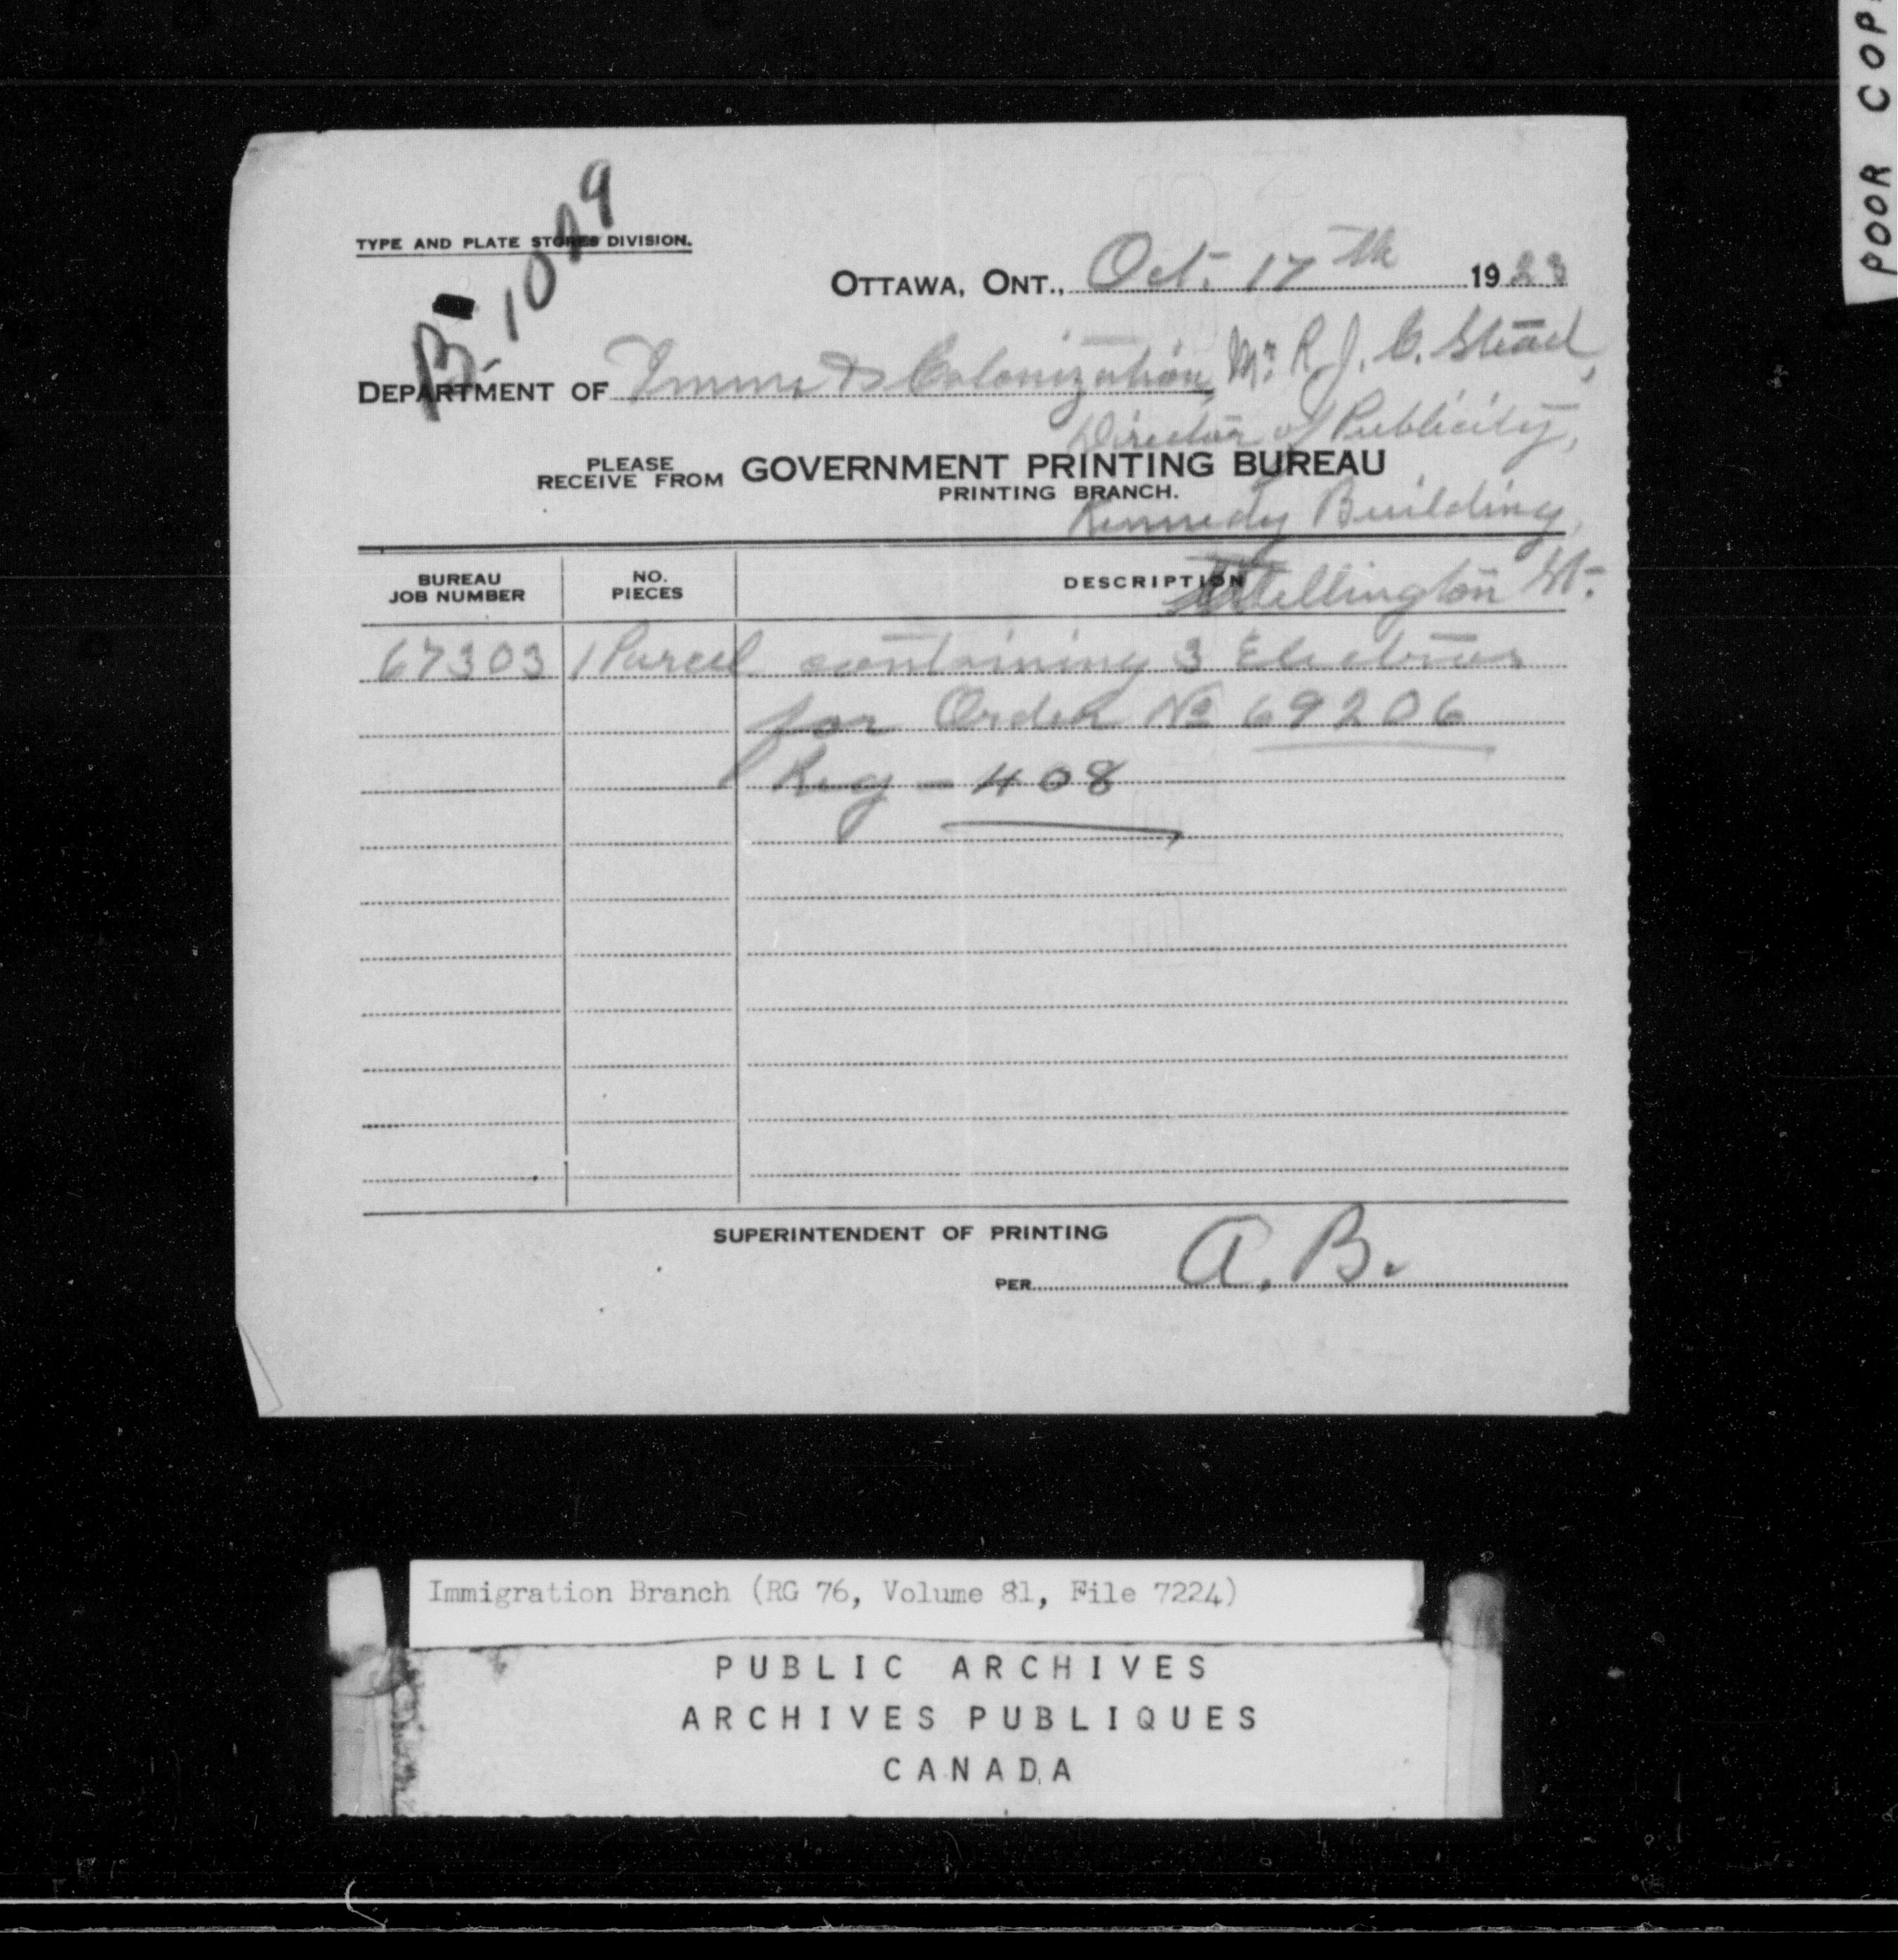 POOR COP
B-1049
TYPE AND PLATE STORES DIVISION.
OTTAWA, ONT., Oct. 17th 1923
DEPARTMENT OF Immi & Colonization, Mr. R. J. C. Stead,
Director of Publicity,
PLEASE RECEIVE FROM GOVERNMENT PRINTING BUREAU
PRINTING BRANCH.
Kennedy Building,
Wellington St.
BUREAU JOB NUMBER NO. PIECES DESCRIPTION
67303 1 Parcel containing 3 Electros
for Order No 69206
Reg - 408
SUPERINTENDENT OF PRINTING
PER A. B.
Immigration Branch (RG 76, Volume 81, File 7224)
PUBLIC ARCHIVES
ARCHIVES PUBLIQUES
CANADA